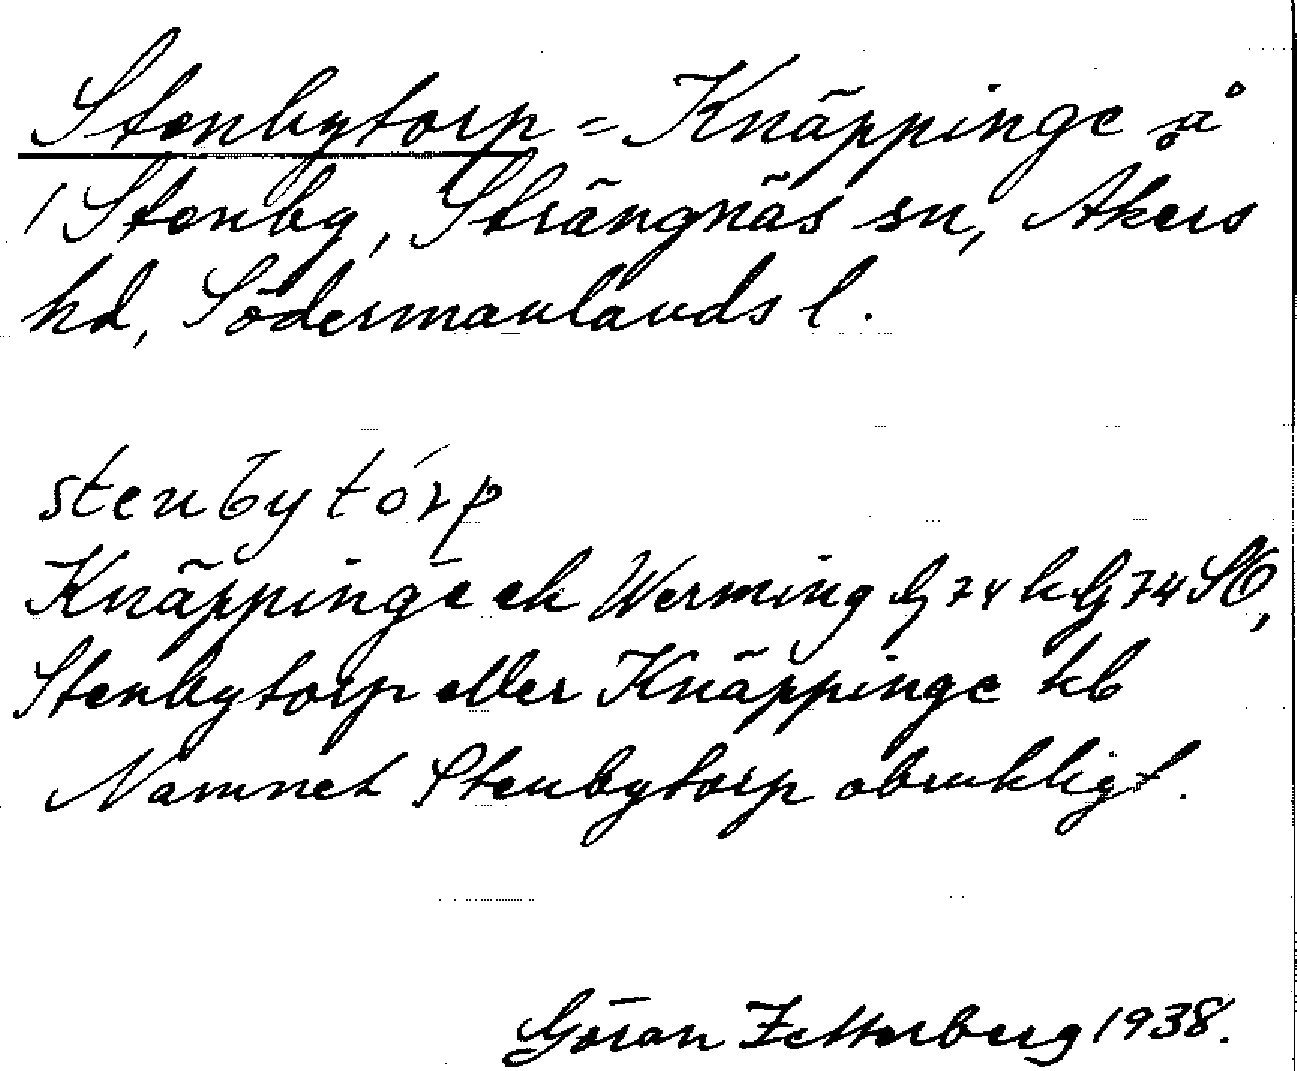 Stenbytorp = Knäppinge å
1 Stenby, Strängnäs sn, Åkers
hd, Södermanlands l.
stenbytórp
Knäppinge ek Werming 74 74
Stenbytorp eller Knäppinge kb
Namnet Stenbytorp obrukligt.
Göran Zetterberg 1938.